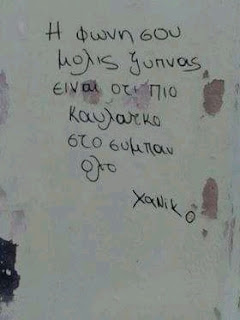 Η φωνη σου
μολις ξυπνας
ειναι οτι πιο
καυλατκο
στο συμπαν
ολο
χανικο